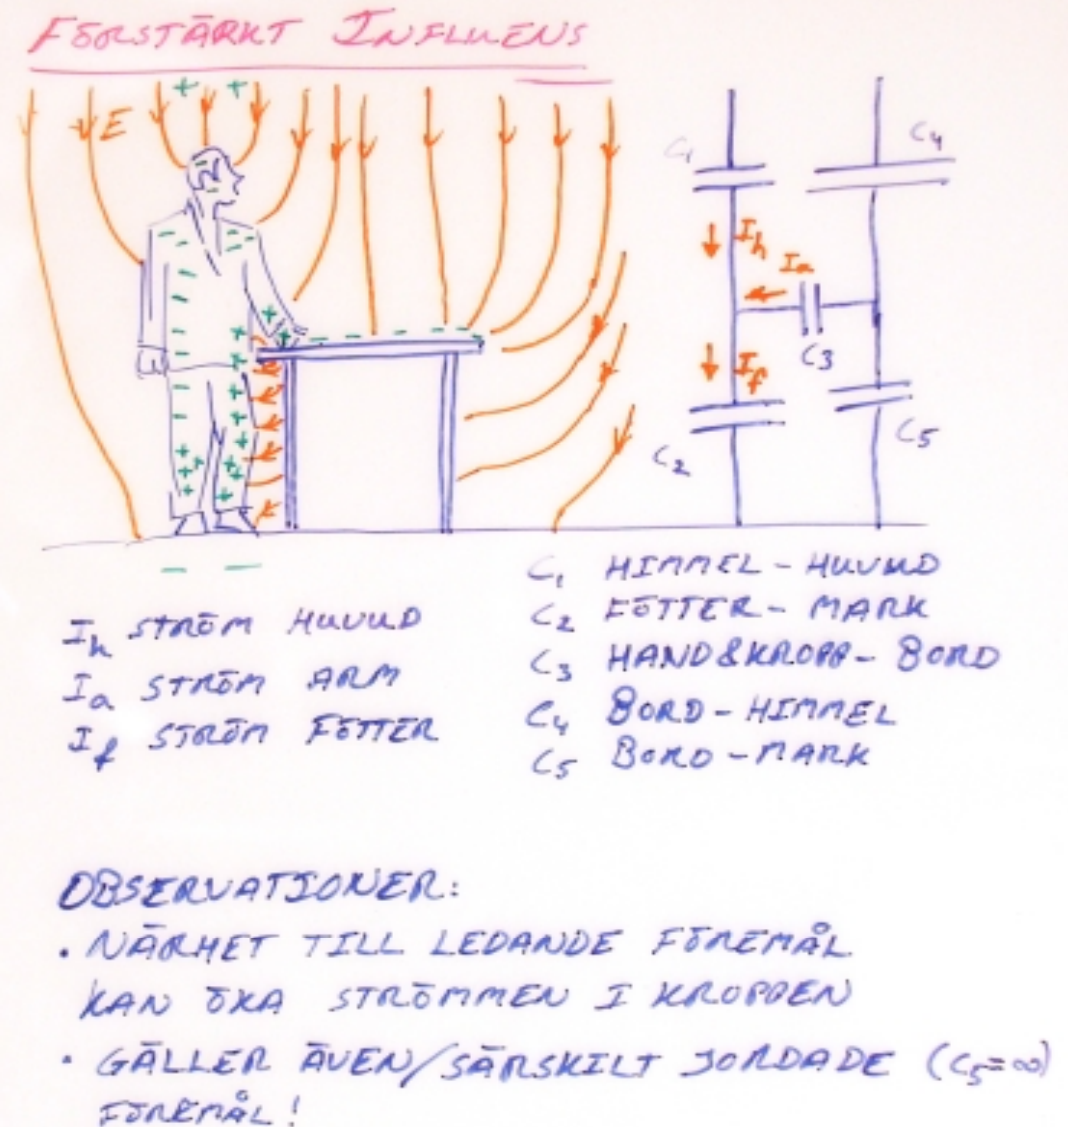 FÖRSTÄRKT INFLUENS
E
C1
C4
Ih
Ia
C3
If
C2
C5
Ih STRÖM HUVUD
Ia STRÖM ARM
If STRÖM FÖTTER
C1 HIMMEL - HUVUD
C2 FÖTTER - MARK
C3 HAND&KROPP - BORD
C4 BORD - HIMMEL
C5 BORD - MARK
OBSERVATIONER:
• NÄRHET TILL LEDANDE FÖREMÅL
KAN ÖKA STRÖMMEN I KROPPEN
• GÄLLER ÄVEN/SÄRSKILT JORDADE (C5=∞)
FÖREMÅL!